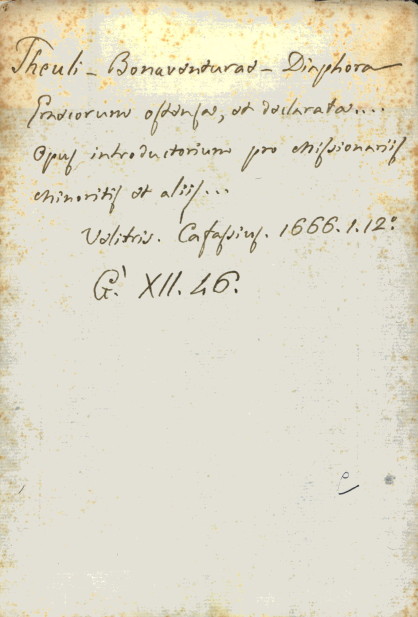 Theuli - Bonaventurae - Diaphora
Graecorum ostensa, et declarata....
Opus introductorium pro Missionariis
Minoritis et aliis...
Velitris. Cafassius. 1666. 1. 12°
G. XII. 46.